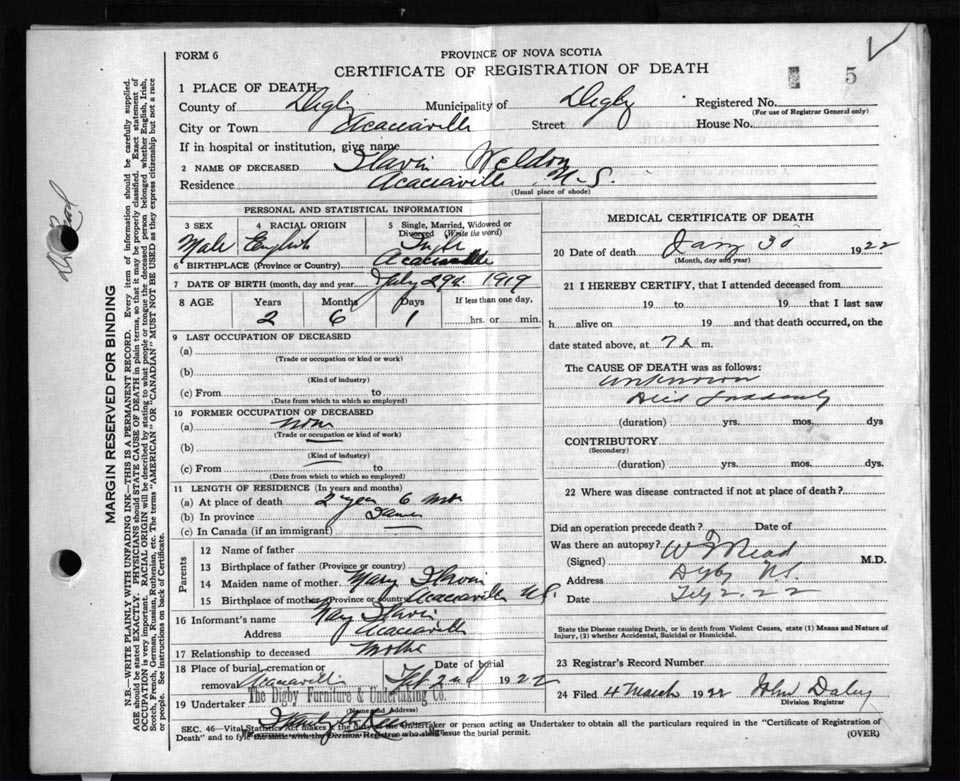 FORM 6
PROVINCE OF NOVA SCOTIA
CERTIFICATE OF REGISTRATION OF DEATH
5
1 PLACE OF DEATH
County of Digby Municipality of Digby Registered No.
(For use of Registrar General only)
City or Town Acaciaville Street House No.
If in hospital or institution, give name
2 NAME OF DECEASED Weldon
Residence Acaciaville N-S.
(Usual place of abode)
PERSONAL AND STATISTICAL INFORMATION
3 SEX 4 RACIAL ORIGIN 5 Single, Married, Widowed or Divorced (Write the word)
Male English Single
6 BIRTHPLACE (Province or Country) Acaciaville
7 DATE OF BIRTH (month, day and year July 29th 1919
8 AGE Years Months Days If less than one day,
2 6 1 hrs. or min.
9 LAST OCCUPATION OF DECEASED
(a)
(Trade or occupation or kind or work)
(b)
(Kind of industry)
(c) From to
(Date from which to which so employed)
10 FORMER OCCUPATION OF DECEASED
(a) none
(Trade or occupation or kind of work)
(b)
(Kind of industry)
(c) From to
(Date from which to which so employed)
11 LENGTH OF RESIDENCE (In years and months)
(a) At place of death 2 years 6 mos
(b) In province Same
(c) In Canada (if an immigrant)
Parents
12 Name of father
13 Birthplace of father (Province or country)
14 Maiden name of mother Mary
15 Birthplace of mother (Province or country Acaciaville N.S.
16 Informant's name Mary
Address Acaciaville
17 Relationship to deceased Mother
18 Place of burial, cremation or removal Acaciaville Date of burial Feb 2nd 1922
19 Undertaker The Digby Furniture & Undertaking Co.
(Name and Address)
MEDICAL CERTIFICATE OF DEATH
20 Date of death Jany 30 1922
(Month, day and year)
21 I HEREBY CERTIFY, that I attended deceased from
19 to 19 that I last saw
h alive on 19 and that death occurred, on the
date stated above, at 7 m.
The CAUSE OF DEATH was as follows:
unknown
Died suddenly
(duration) yrs. mos. dys
CONTRIBUTORY
(Secondary)
(duration) yrs. mos. dys.
22 Where was disease contracted if not at place of death?
Did an operation precede death? Date of
Was there an autopsy?
(Signed) Read M.D.
Address Digby N.S.
Date Feby 2. 22
State the Disease causing Death, or in death from Violent Causes, state (1) Means and Nature of
Injury, (2) whether Accidental, Suicidal or Homicidal.
23 Registrar's Record Number
24 Filed 4 March 1922 John Daley
Division Registrar
SEC. 46—Vital Statistics Act makes it the duty of the Undertaker or person acting as Undertaker to obtain all the particulars required in the "Certificate of Registration of
Death" and to file the same with the Division Registrar who shall issue the burial permit.
(OVER)
MARGIN RESERVED FOR BINDING
N.B.—WRITE PLAINLY WITH UNFADING INK—THIS IS A PERMANENT RECORD. Every item of information should be carefully supplied.
AGE should be stated EXACTLY. PHYSICIANS should STATE CAUSE OF DEATH in plain terms, so that it may be properly classified. Exact statement of
OCCUPATION is very important. RACIAL ORIGIN will be described by stating to what people or tongue the deceased person belonged, whether English, Irish,
Scotch, French, German, Russian, Ruthenian, etc. The terms "AMERICAN" OR "CANADIAN" MUST NOT BE USED as they express citizenship but not a race
or people. See instructions on back of Certificate.